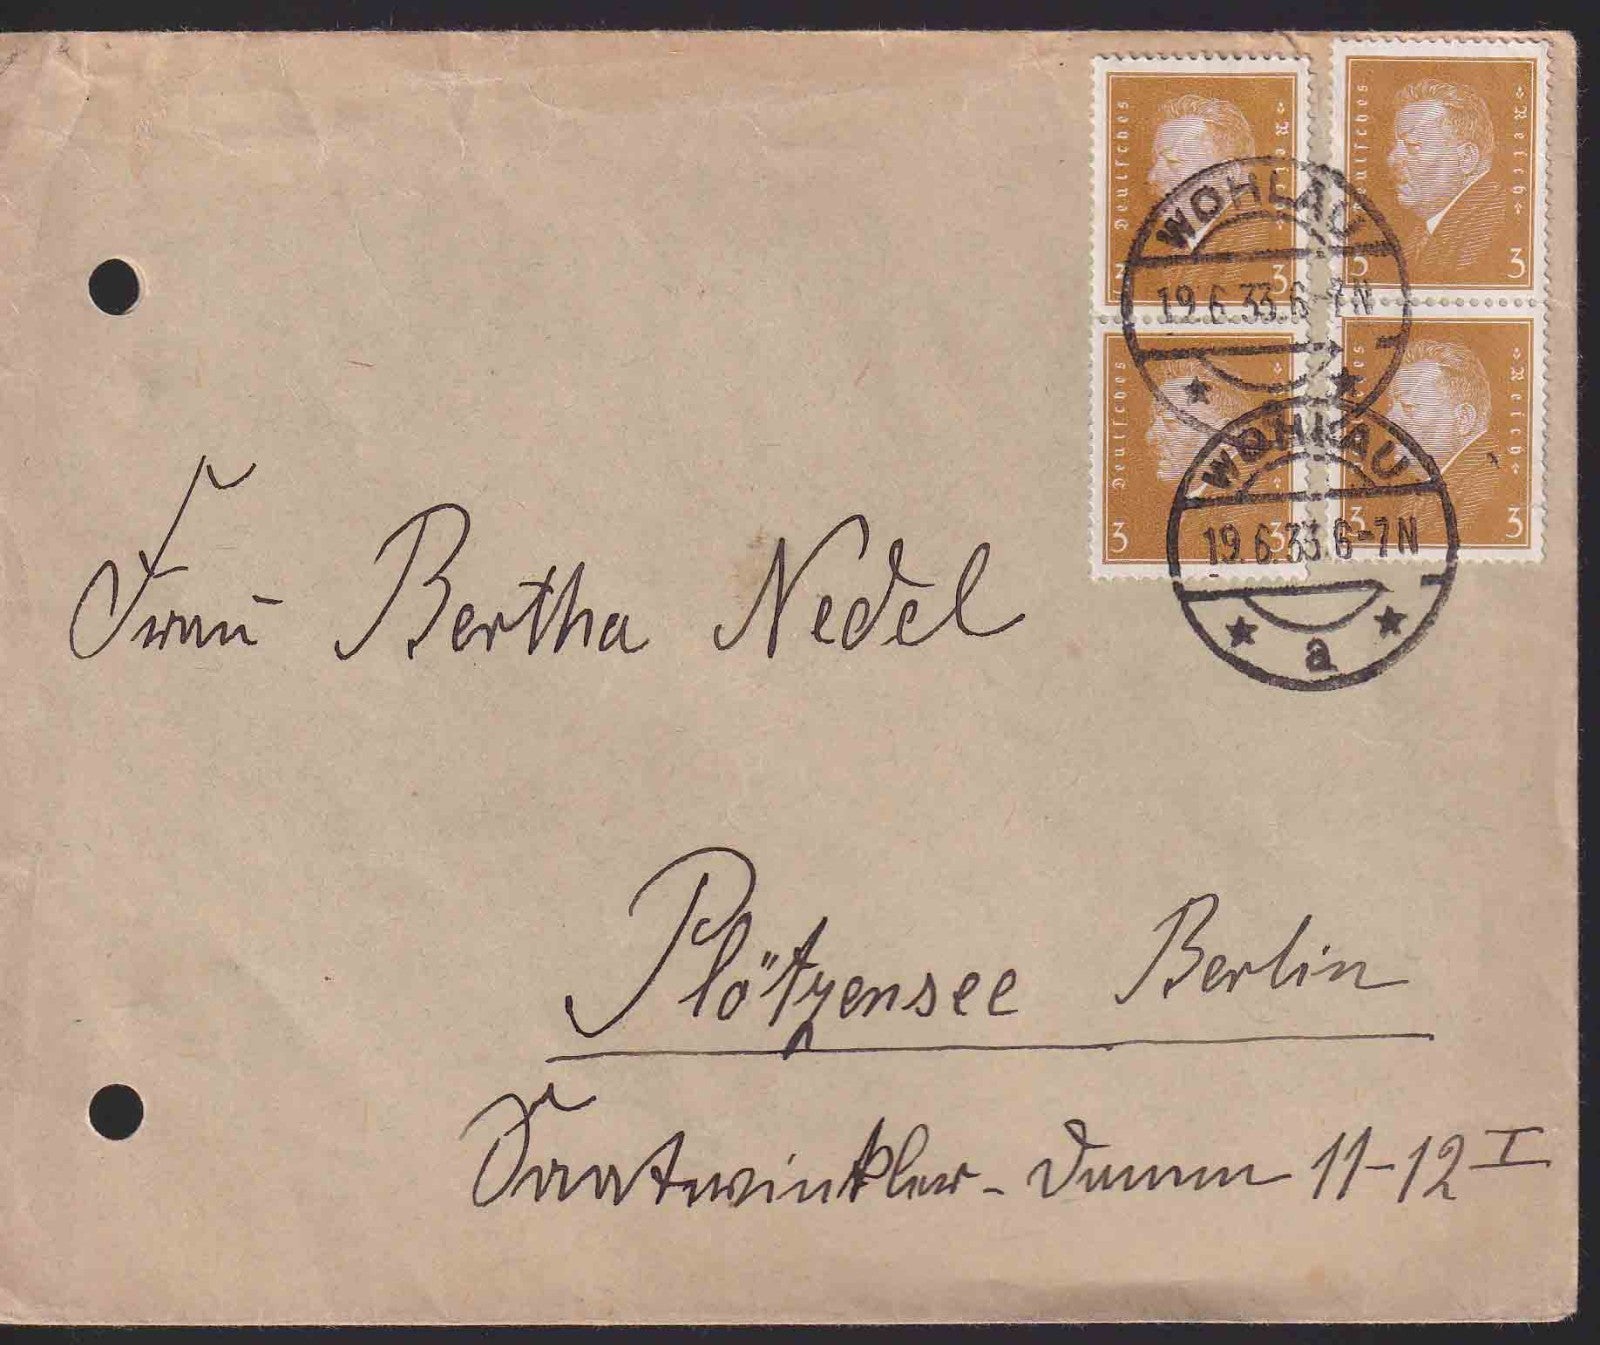 Deutsches Reich
3
Deutsches Reich
3 3
Deutsches Reich
3 3
Deutsches Reich
3 3
WOHLAU
19.6.33.6-7N
WOHLAU
19.6.33.6-7N
a
Frau Bertha Nedel
Plötzensee Berlin
Saatwinkler-Damm 11-12 I